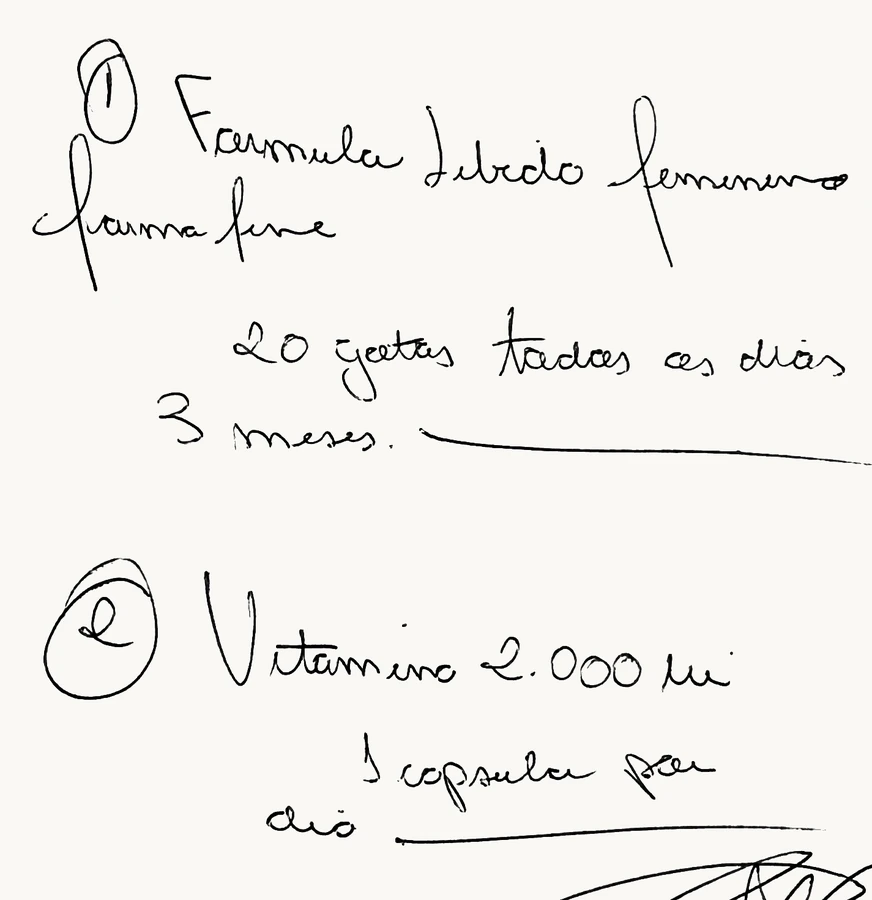 ① Formula Libido feminino
farma fine
20 gotas todos os dias
3 meses.
② Vitamina 2.000 ui
1 capsula por
dia